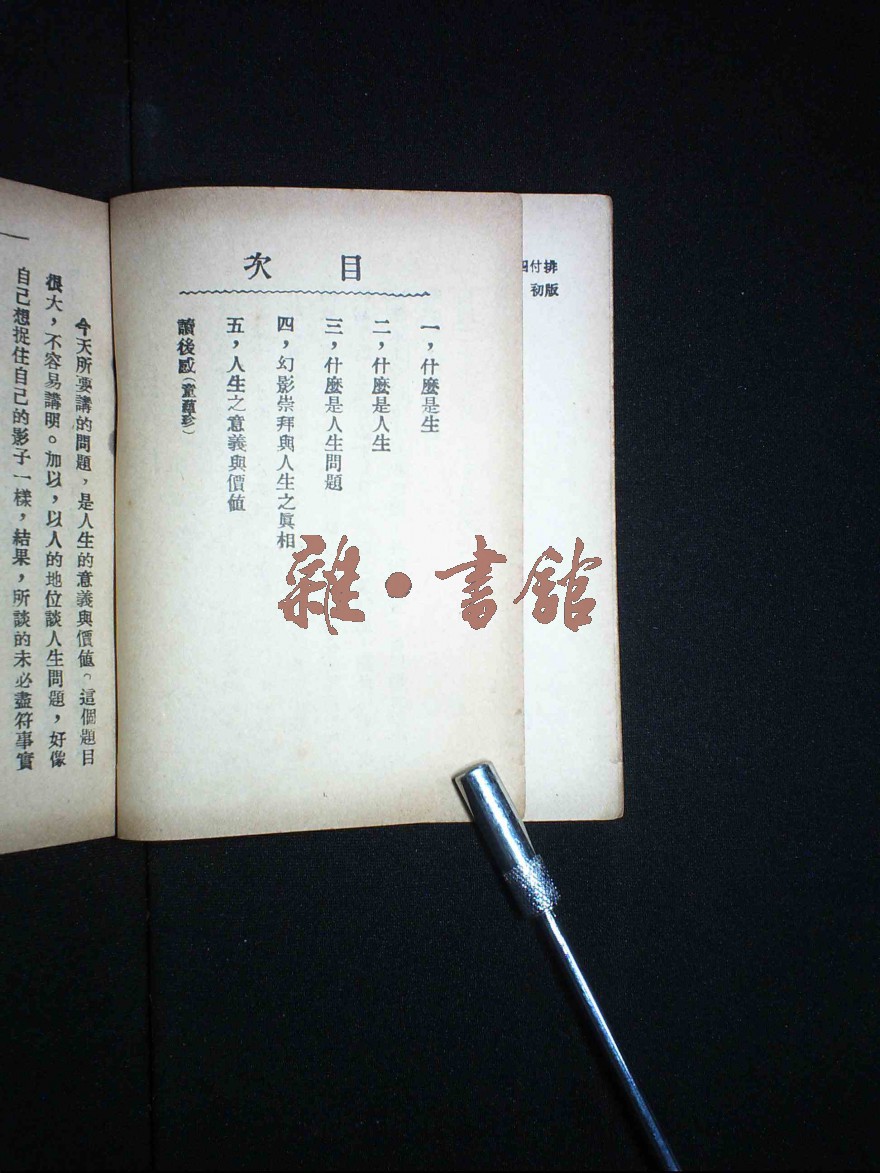 付排
初版
目次
一，什麼是生
二，什麼是人生
三，什麼是人生問題
四，幻影崇拜與人生之眞相
五，人生之意義與價値
讀後感
今天所要講的問題，是人生的意義與價値。這個題目
很大，不容易講明。加以，以人的地位談人生問題，好像
自己想捉住自己的影子一樣，結果，所談的未必盡符事實
一
雜·書館